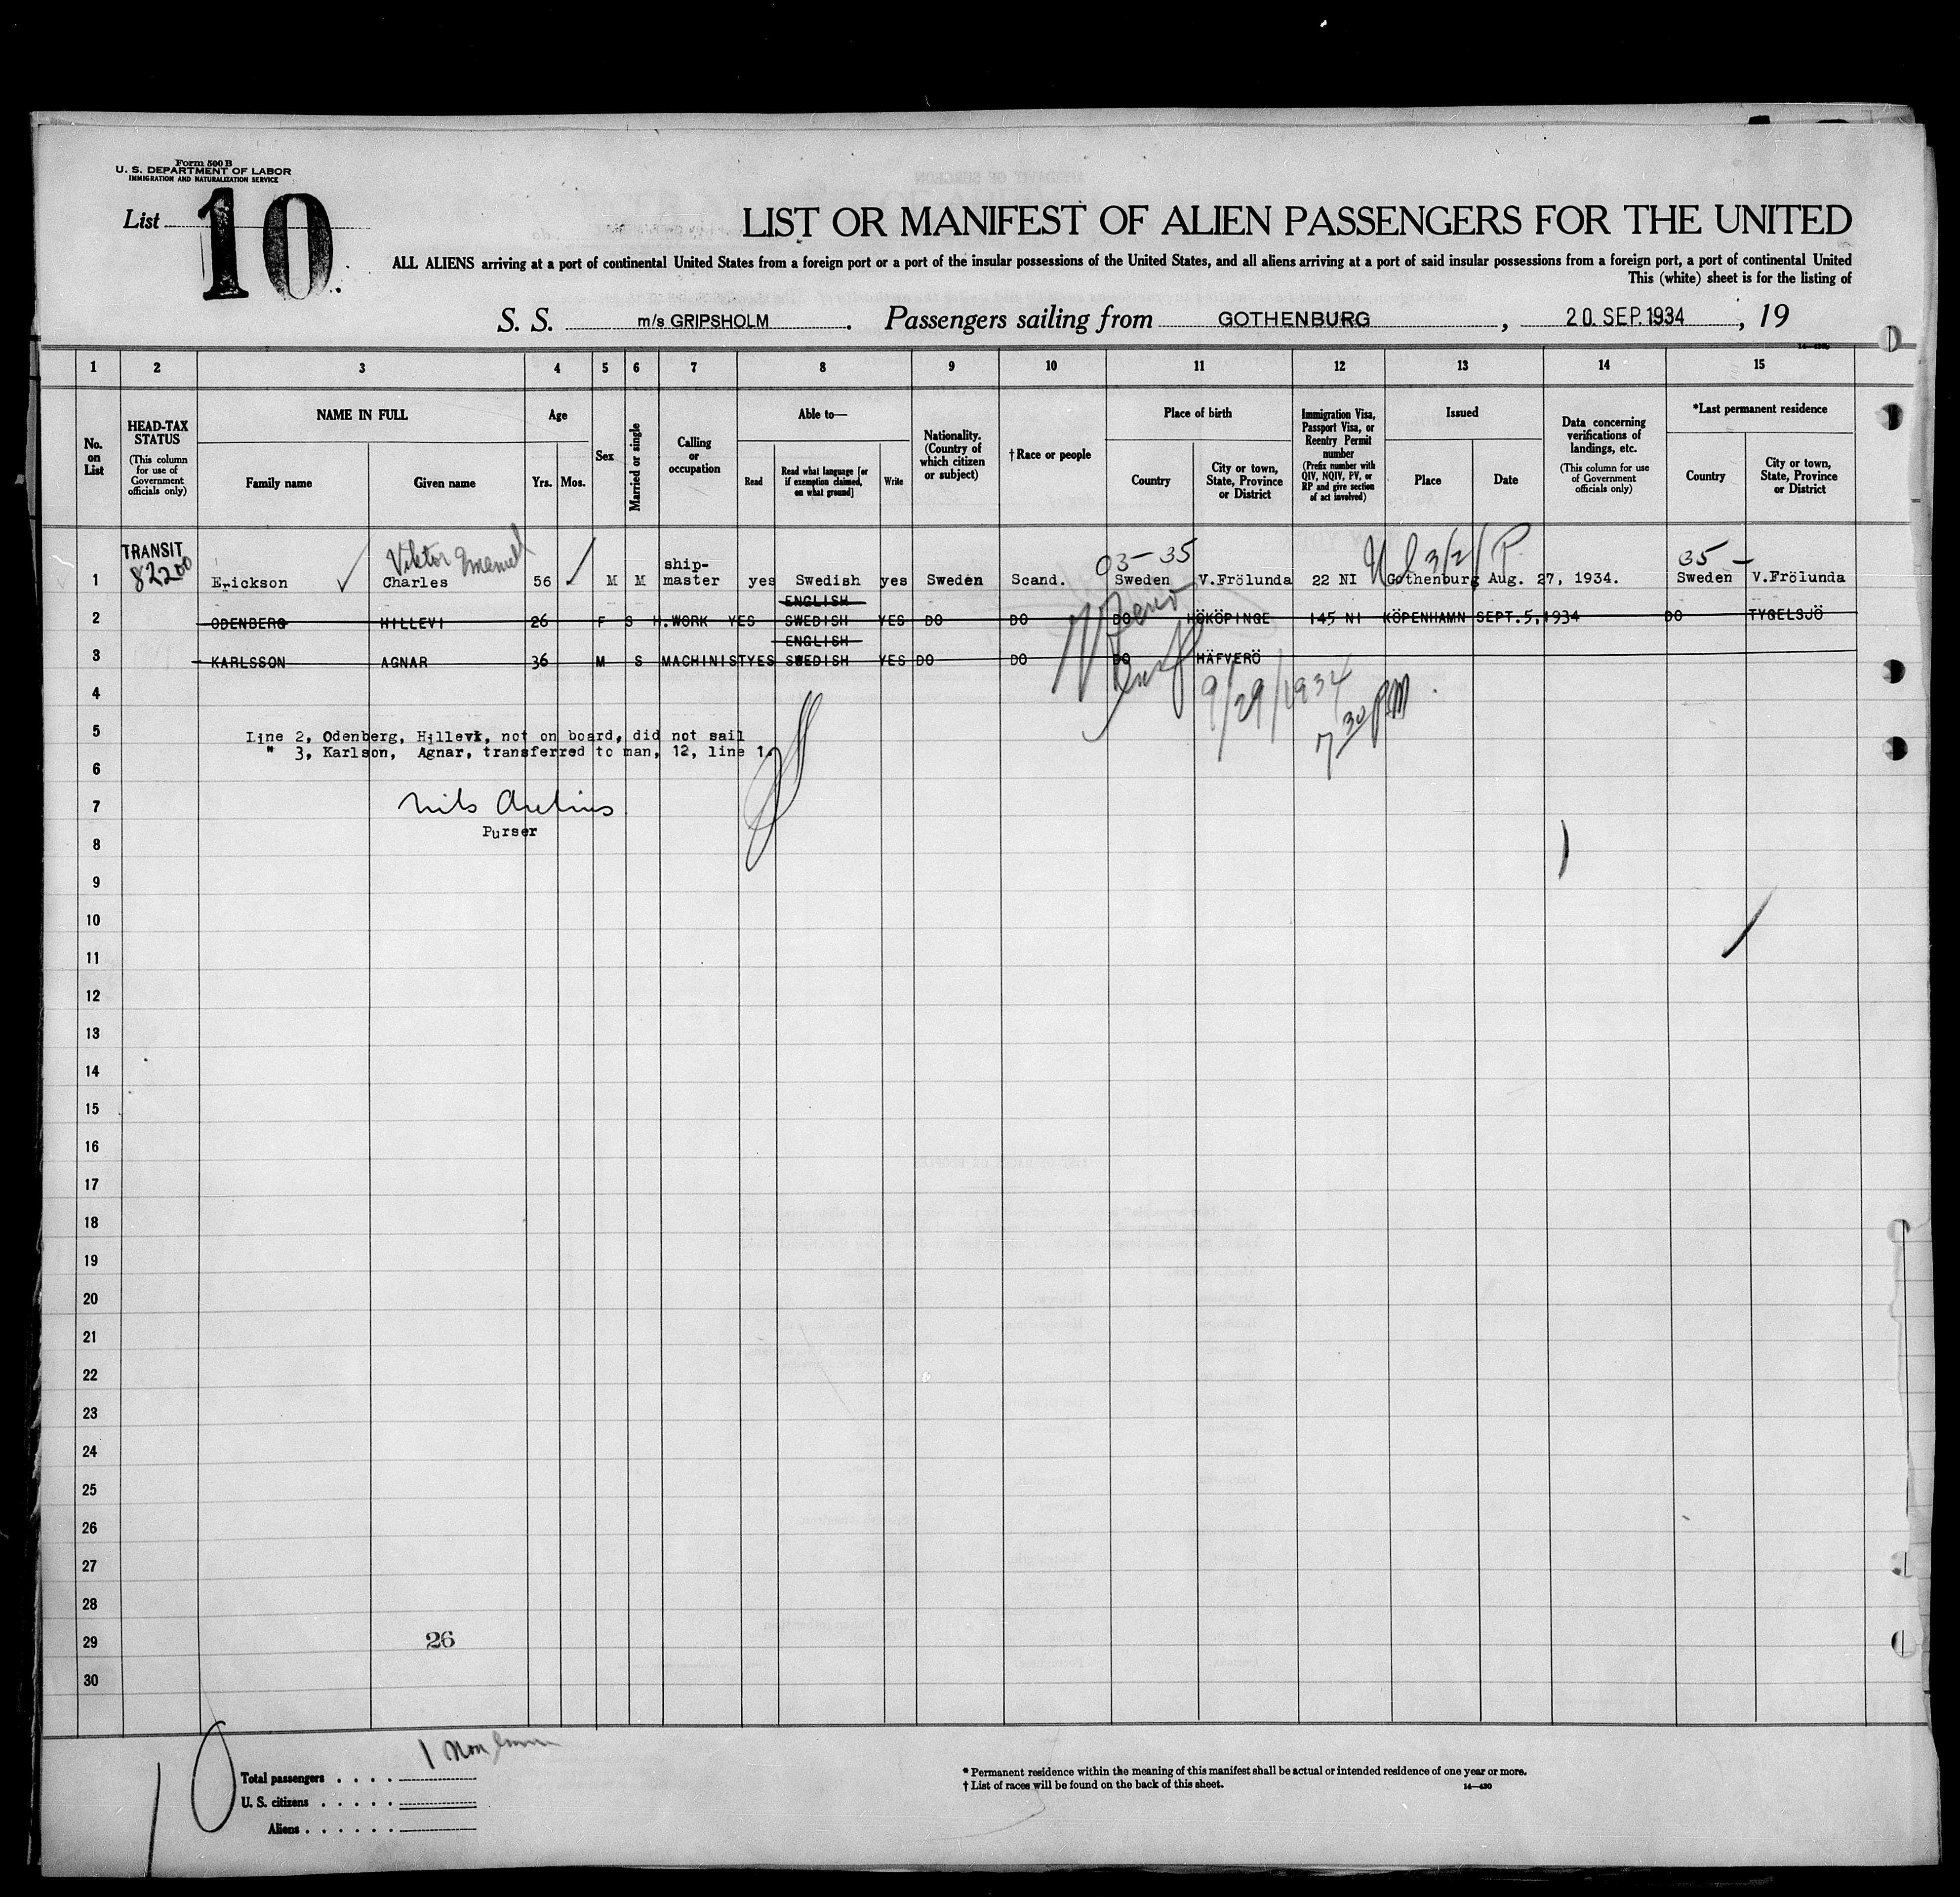 Form 500 B
U. S. DEPARTMENT OF LABOR
IMMIGRATION AND NATURALIZATION SERVICE
List 10
LIST OR MANIFEST OF ALIEN PASSENGERS FOR THE UNITED
ALL ALIENS arriving at a port of continental United States from a foreign port or a port of the insular possessions of the United States, and all aliens arriving at a port of said insular possessions from a foreign port, a port of continental United
This (white) sheet is for the listing of
S. S. m/s GRIPSHOLM. Passengers sailing from GOTHENBURG, 20. SEP. 1934, 19
1 2 3 4 5 6 7 8 9 10 11 12 13 14 15
No. on List
HEAD-TAX STATUS (This column for use of Government officials only)
NAME IN FULL
Family name
Given name
Age
Yrs.
Mos.
Sex
Married or single
Calling or occupation
Able to—
Read
Read what language [or if exemption claimed, on what ground]
Write
Nationality. (Country of which citizen or subject)
†Race or people
Place of birth
Country
City or town, State, Province or District
Immigration Visa, Passport Visa, or Reentry Permit number (Prefix number with QIV, NQIV, PV, or RP and give section of act involved)
Issued
Place
Date
Data concerning verifications of landings, etc. (This column for use of Government officials only)
*Last permanent residence
Country
City or town, State, Province or District
TRANSIT Viktor Emanuel 03-35 35-
1 82200 Erickson Charles 56 M M ship-master yes Swedish yes Sweden Scand. Sweden V.Frölunda 22 NI Gothenburg Aug. 27, 1934. Sweden V.Frölunda
ENGLISH
2 ODENBERG HILLEVI 26 F S H.WORK YES SWEDISH YES DO DO DO HÖKÖPINGE 145 NI KÖPENHAMN SEPT.5,1934 DO TYGELSJÖ
ENGLISH
3 KARLSSON AGNAR 36 M S MACHINIST YES SWEDISH YES DO DO DO HÄFVERÖ
9/29/1934
7 30 PM
4
5
Line 2, Odenberg, Hillevi, not on board, did not sail
" 3, Karlson, Agnar, transferred to man, 12, line 1.
6
7
Nils
Purser
8
9
10
11
12
13
14
15
16
17
18
19
20
21
22
23
24
25
26
27
28
29 26
30
10
1 Non
Total passengers . . . .
U. S. citizens . . . . .
Aliens . . . . . .
* Permanent residence within the meaning of this manifest shall be actual or intended residence of one year or more.
† List of races will be found on the back of this sheet.
14—430